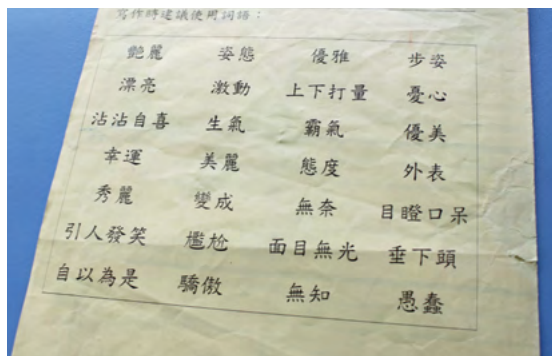 寫作時建議使用詞語：
艷麗 姿態 優雅 步姿
漂亮 激動 上下打量 憂心
沾沾自喜 生氣 霸氣 優美
幸運 美麗 態度 外表
秀麗 變成 無奈 目瞪口呆
引人發笑 尷尬 面目無光 垂下頭
自以為是 驕傲 無知 愚蠢